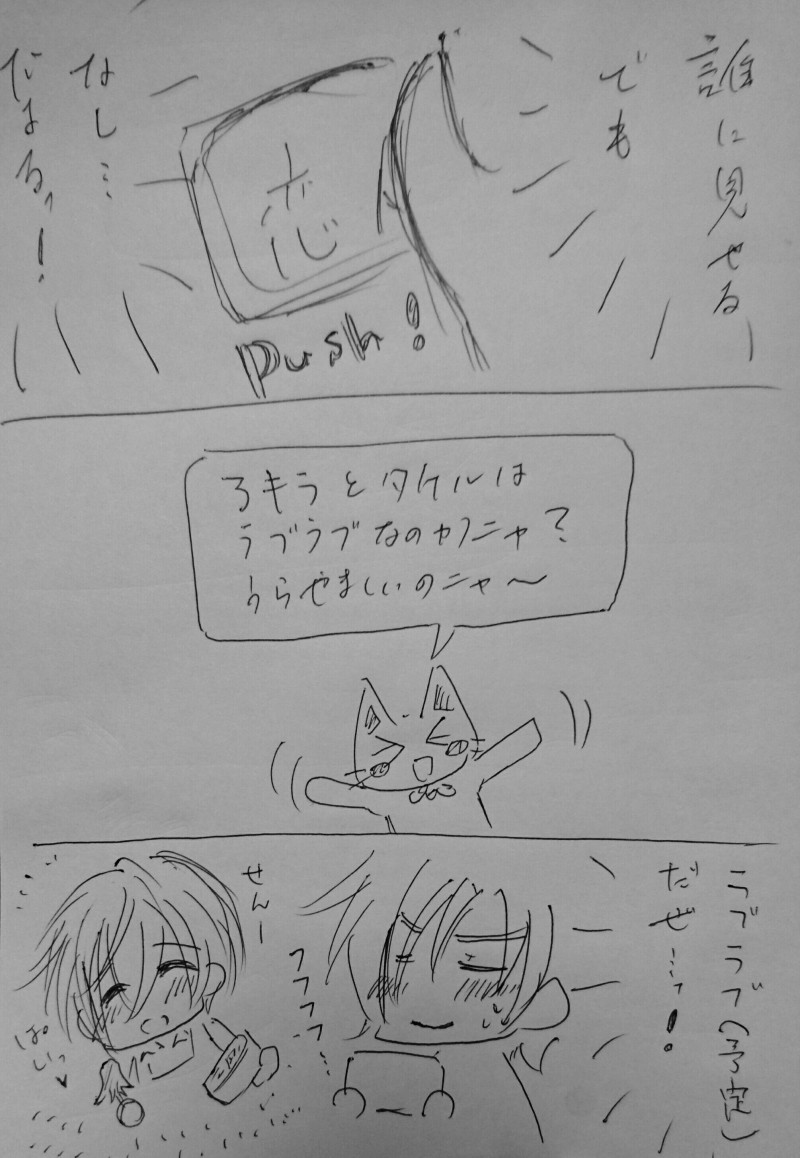 誰に見せる
でも
なし…
だまるっ!
恋
push!
アキラとタケルは
ラブラブなのかニャ?
うらやましいのニャ〜
ラブラブ(予定)
だぜ…っ!
フフフフフ…
せんー
ぱいっ♥